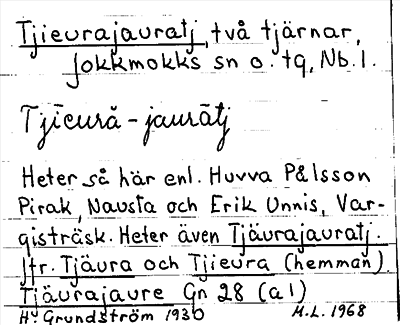 Tjieurajauratj, två tjärnar,
Jokkmokks sn o. tg, Nb.l.
Tjieurā - jaurātj
Heter så här enl. Huvva Pålsson
Pirak, Nausta och Erik Unnis, Var-
gisträsk. Heter även Tjäurajauratj.
Jfr. Tjäura och Tjieura (hemman).
Tjäurajaure Gn 28 (a1)
H. Grundström 1930 M.L. 1968